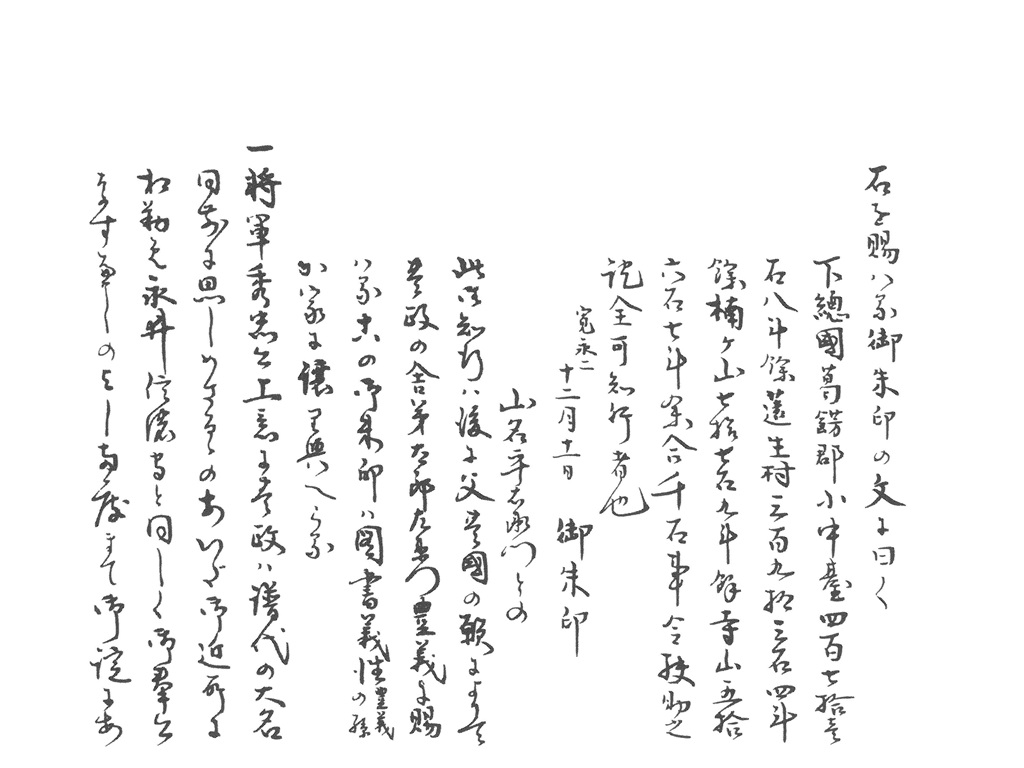 石を賜ハる御朱印の文に曰く
下總國葛餝郡小中臺四百七拾壱
石八斗餘蓮生村三百九拾三石四斗
餘楠ケ山七拾七石九斗餘寺山五拾
六石七斗余合千石事令扶助之
訖全可知行者也
寛永二
十二月十一日 御朱印
山名平右衛門とのへ
此御知行ハ後に父豊國の願によりて
豊政の舎弟左郎左衛門豊義に賜
ハる古の御朱印ハ図書義性豊義の孫
か家に譲り與へらる
一将軍秀忠公上意に豊政ハ譜代の大名
同前に思しめさるゝのあいだ御近所に
相勤め永井信濃守と同しく御奉公
なすへしのよし両度まて御諚にあ